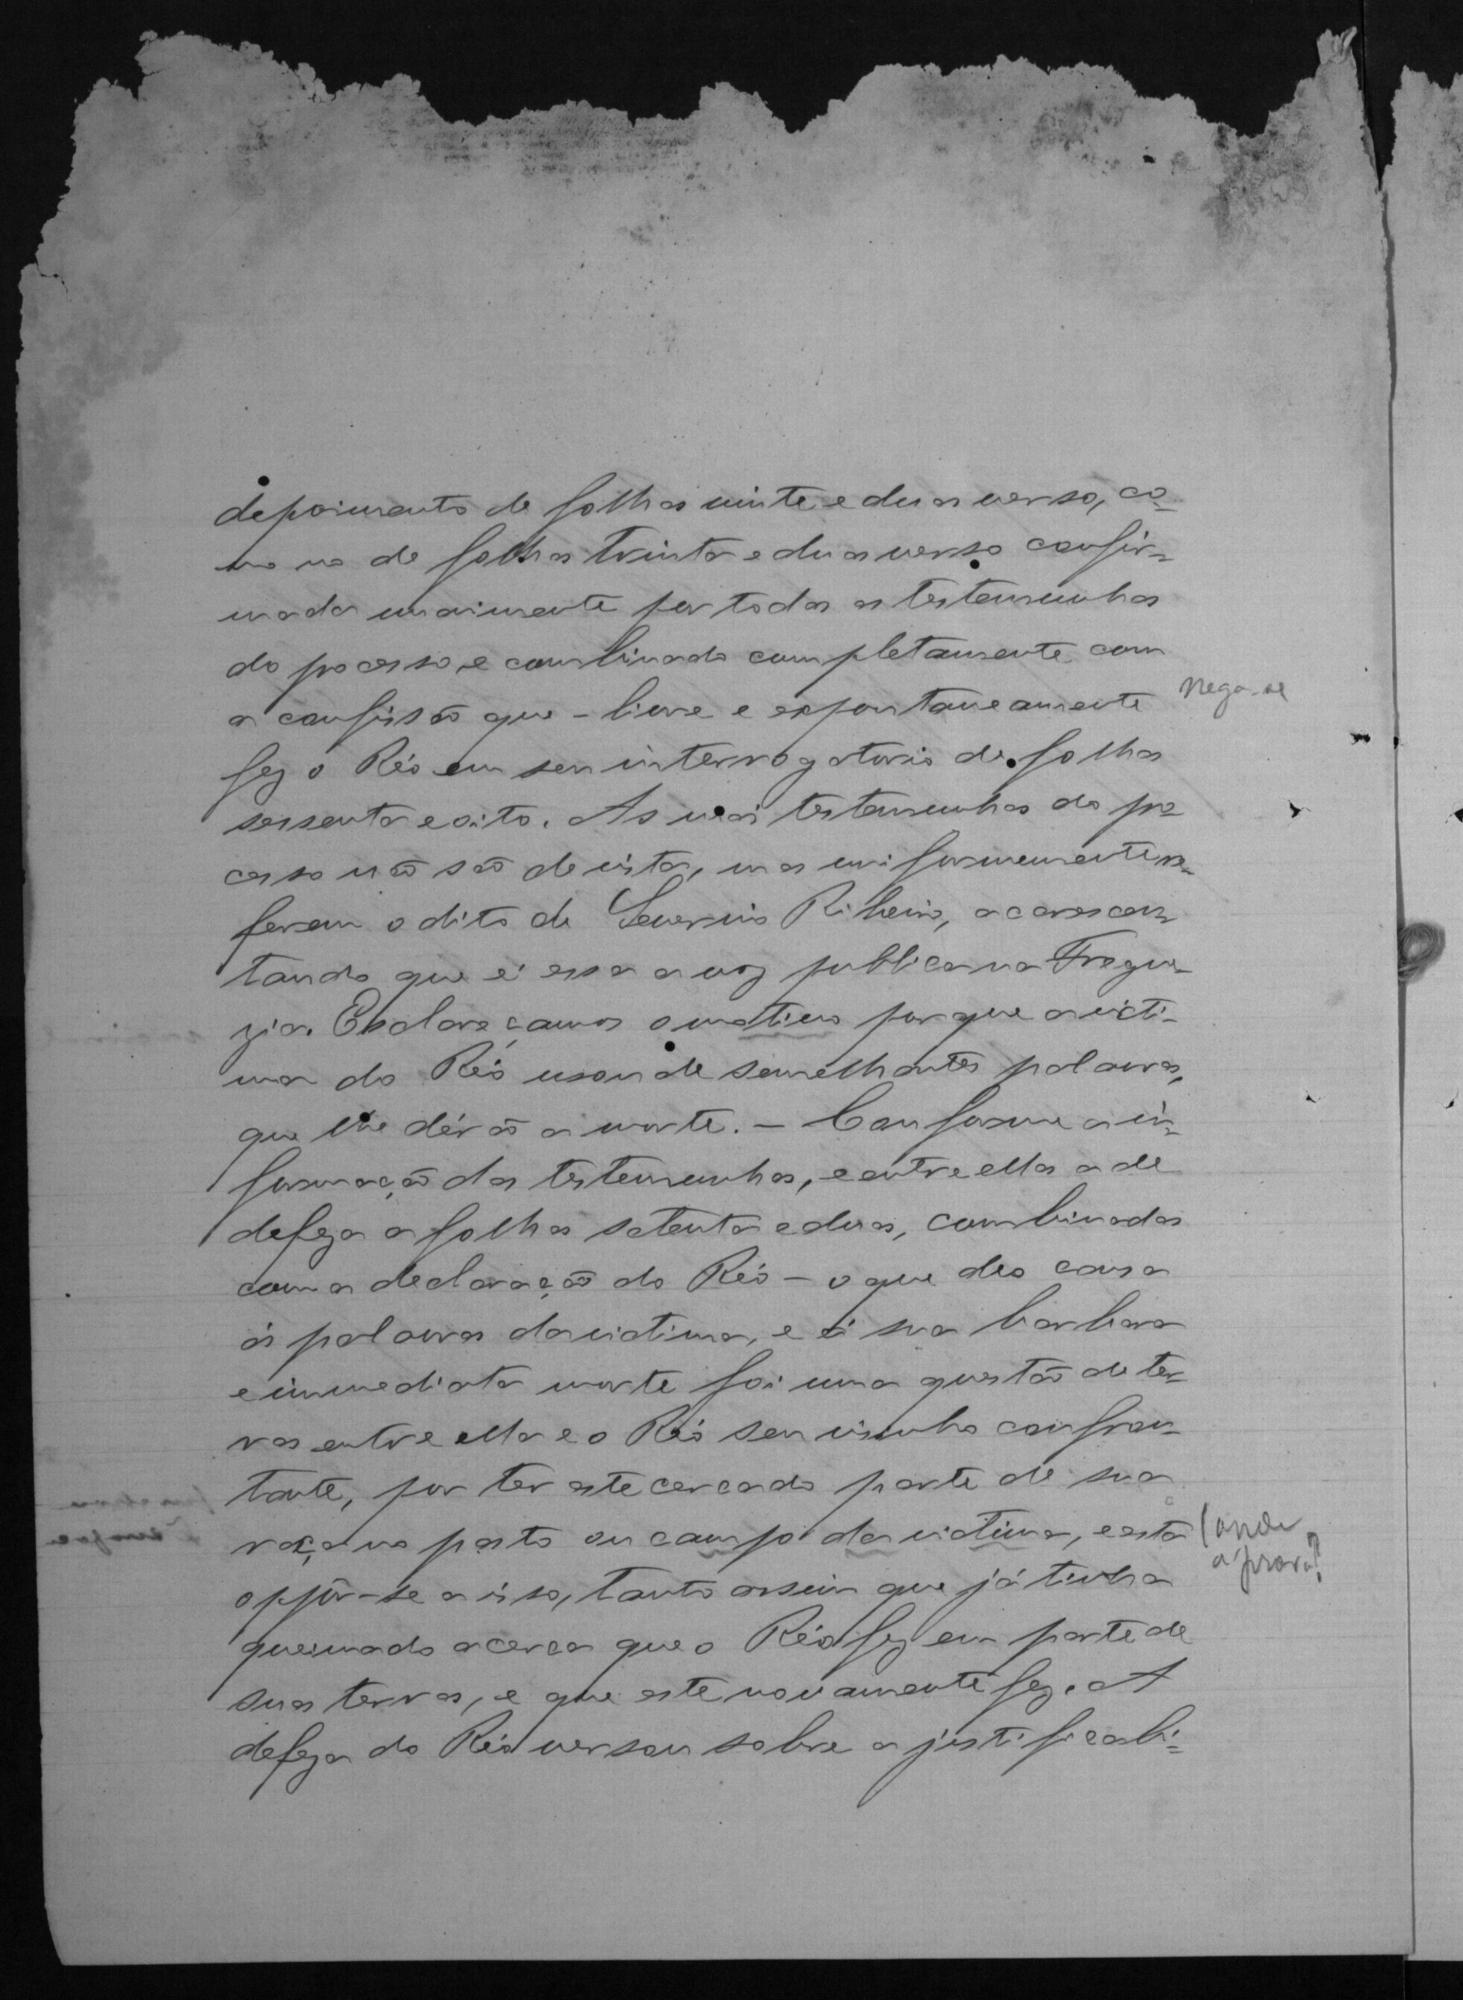 depoimento de folhas vinte e duas verso, co-
mo no de folhas trinta e duas verso confir-
mado unanimente por todas as testemunhas
do processo, e combinado completamente com
a confissão que - livre e espontaneamente
fez o Réo em seu interrogatorio de folhas
sessenta e oito. As mais testemunhas do pro-
cesso não são de vista, mas uniformemente re-
ferem o dito de Severino Ribeiro, accrescen-
tando que é essa a voz publica na Fregue-
zia. Esclareçamos o motivo porque a victi-
ma do Réo usou de semelhantes palavras,
que lhe dérão a morte. - Conforme a in-
formação das testemunhas, e entre ellas a de
defeza a folhas setenta e duas, combinadas
com a declaração do Réo - o que deo causa
ás palavras da victima, e á sua barbara
e immediata morte foi uma questão de ter-
ras entre ella e o Réo seu visinho confron-
tante, por ter este cercado parte de sua
roça no pasto ou campo da victima, e esta
oppôr-se a isso, tanto assim que já tinha
queimado a cerca que o Réo fez em parte de
suas terras, e que este novamente fez. A
defeza do Réo versou sobre a justificabi-
Nega-se
(onde
a prova?